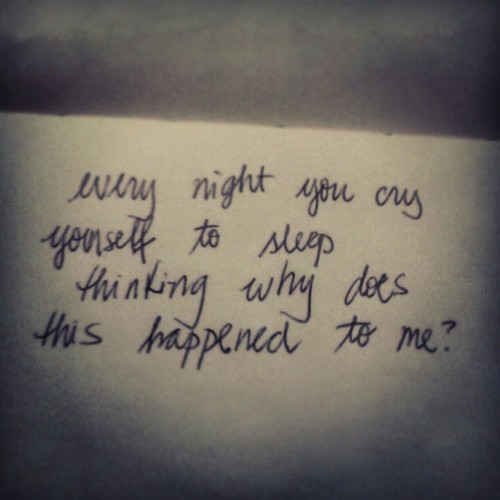 every night you cry
yourself to sleep
thinking why does
this happened to me?